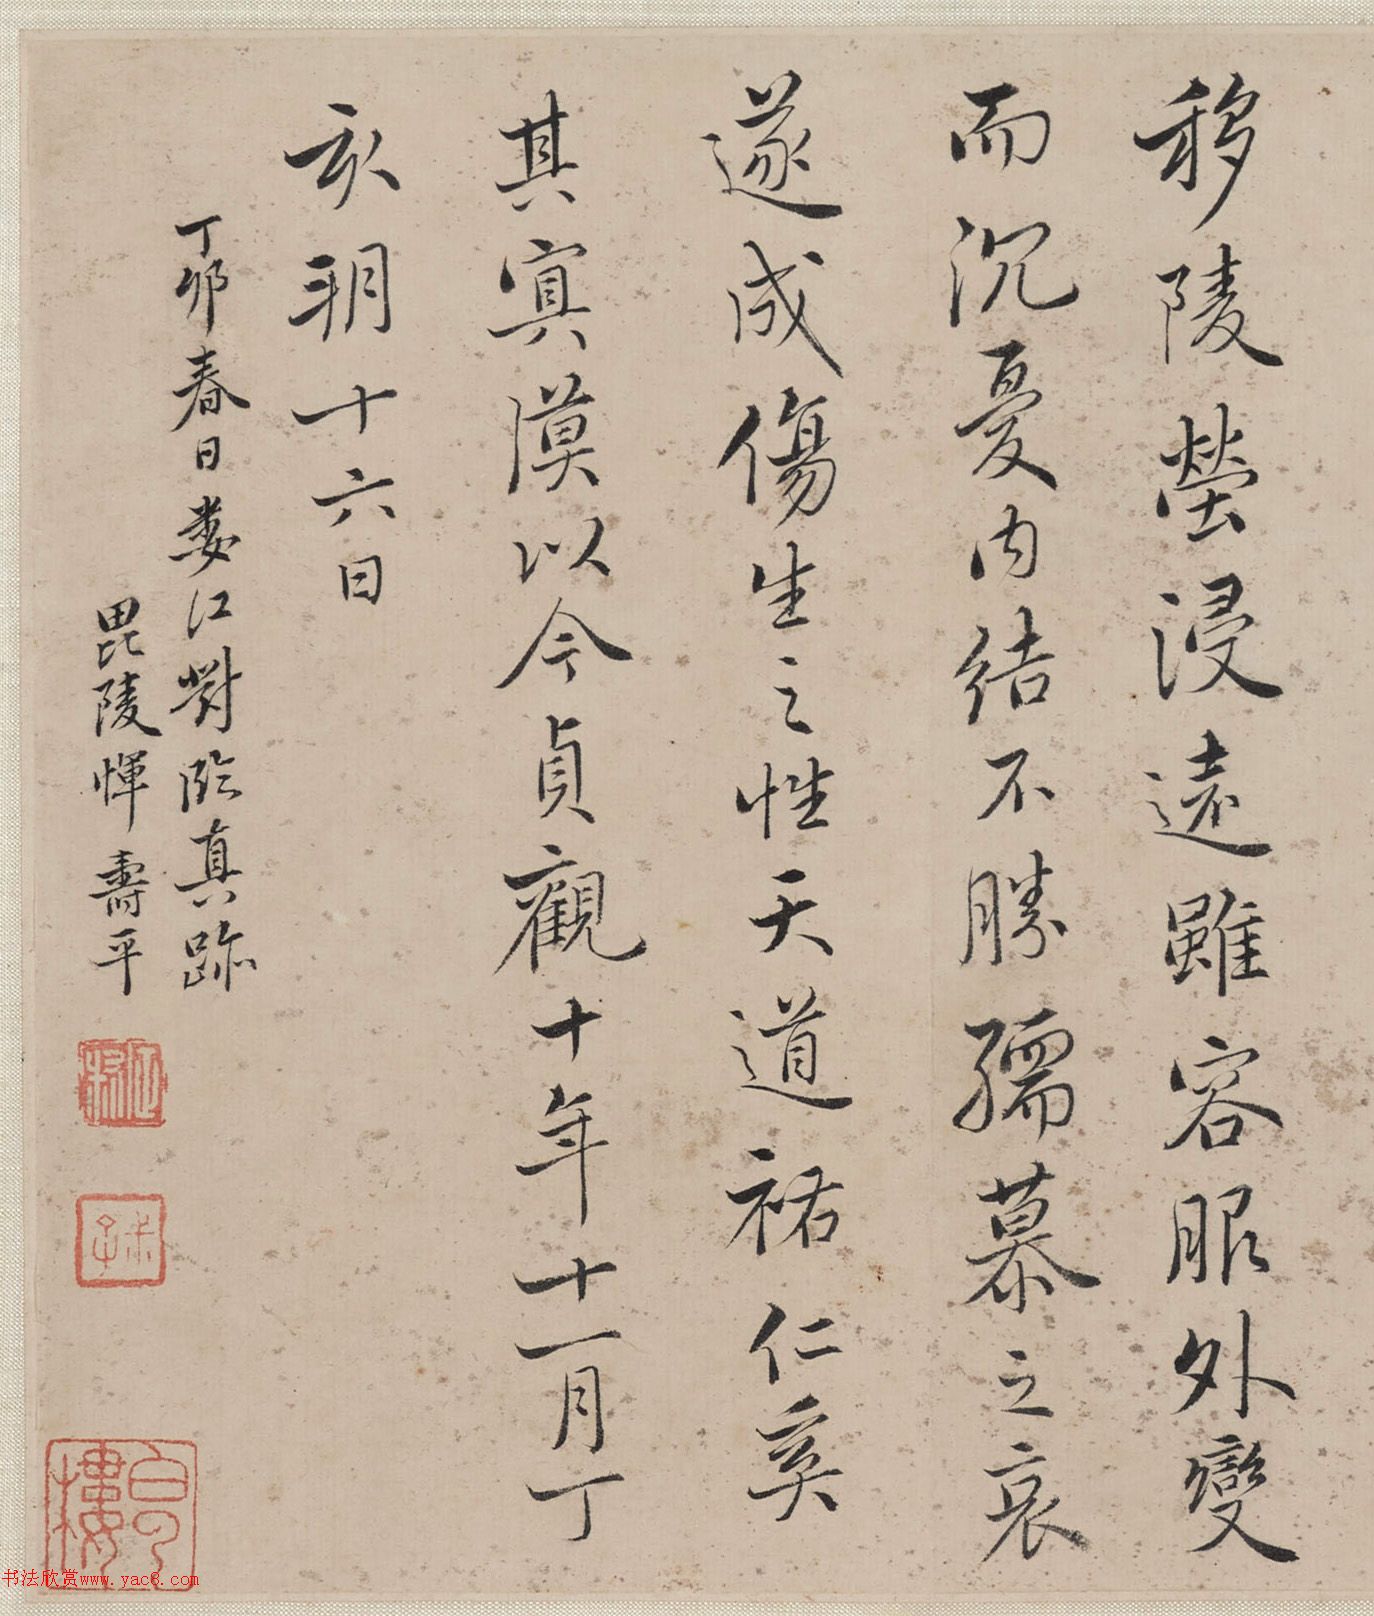 移陵塋浸遠雖容服外變
而沉憂内結不勝孺慕之哀
遂成傷生之性天道祐仁奚
其寘漠以今貞觀十年十一月丁
亥朔十六日
丁卯春日婁江對臨真跡
毘陵惲壽平
书法欣赏www.yac8.com